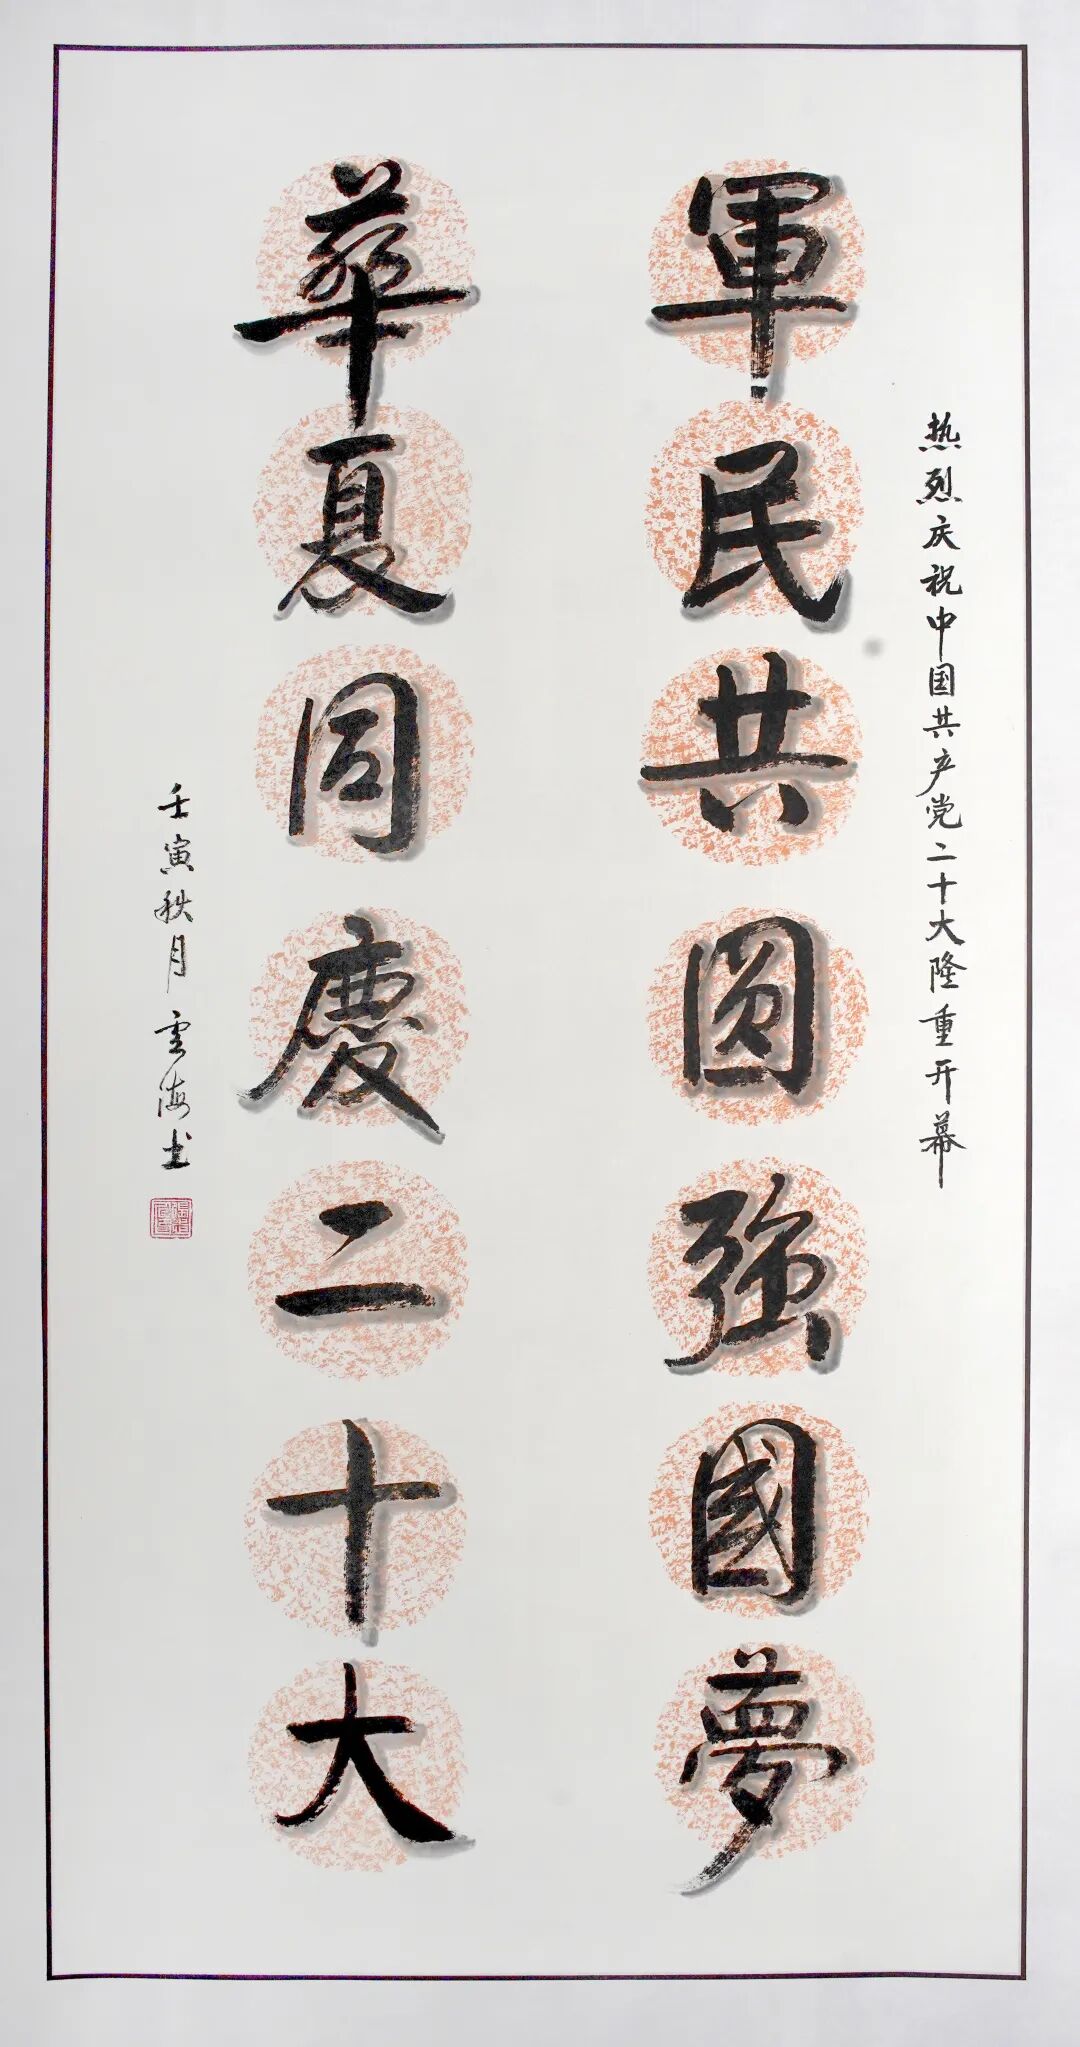 热烈庆祝中国共产党二十大隆重开幕
軍民共圆强國夢
華夏同慶二十大
壬寅秋月雲海书